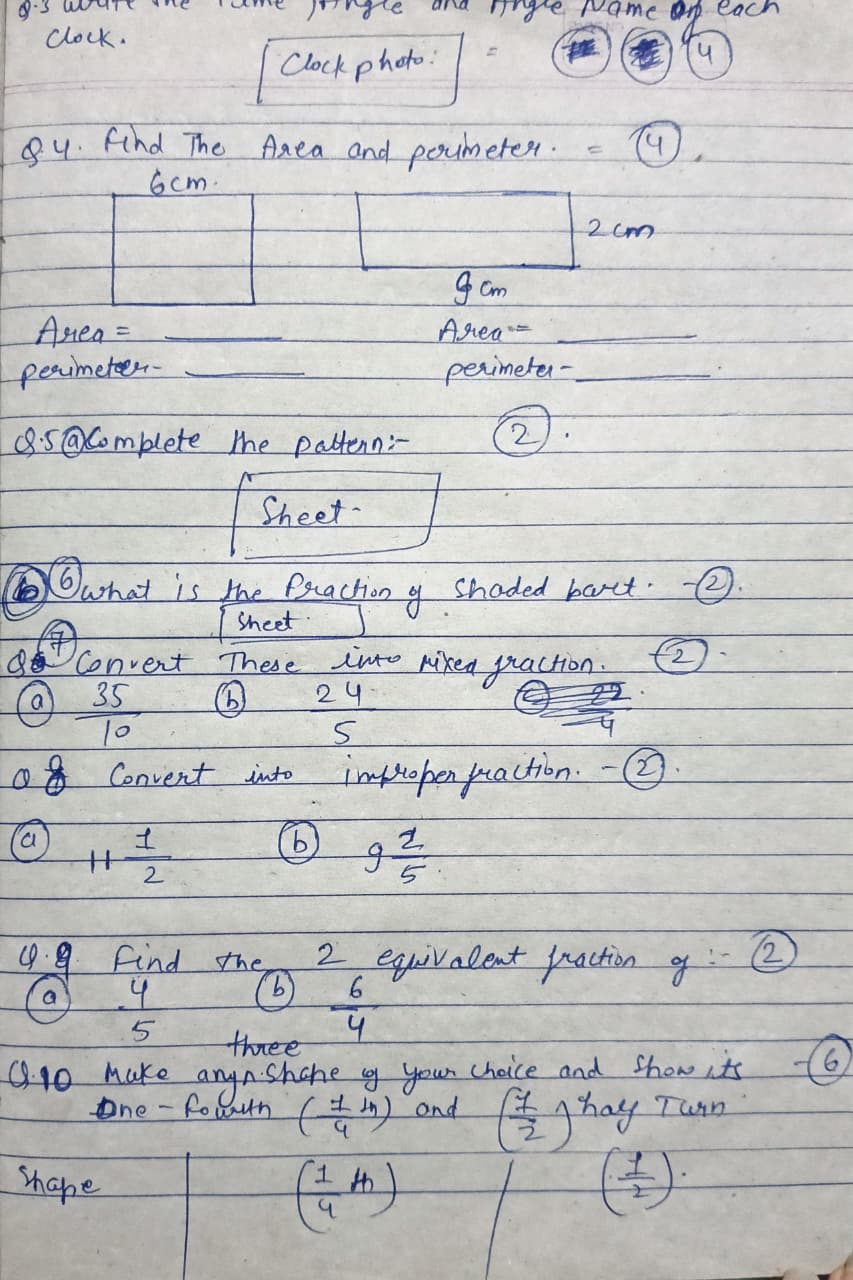 Q.3 write the Time, Angle and Angle Name of each
Clock.
Clock photo: = 4
Q4. find The Area and perimeter. = 4
6cm.
2 cm
9 cm
Area = ______ Area = ______
perimeter- ______ perimeter- ______
Q.5 a Complete the pattern:- 2.
Sheet-
6 what is the fraction of shaded part. - 2.
Sheet
Q 7 Convert These into mixed fraction. - 2.
a 35/10 b 24/5
Q 8 Convert into improper fraction. - 2.
a 11 1/2 b 9 2/5
Q.9. Find the 2 equivalent fraction of :- 2
a 4/5 b 6/4
three
Q.10 Make any Shape of your choice and show its - 6
One - fourth (1/4 th) and (1/2) half Turn
Shape (1/4 th) (1/2).